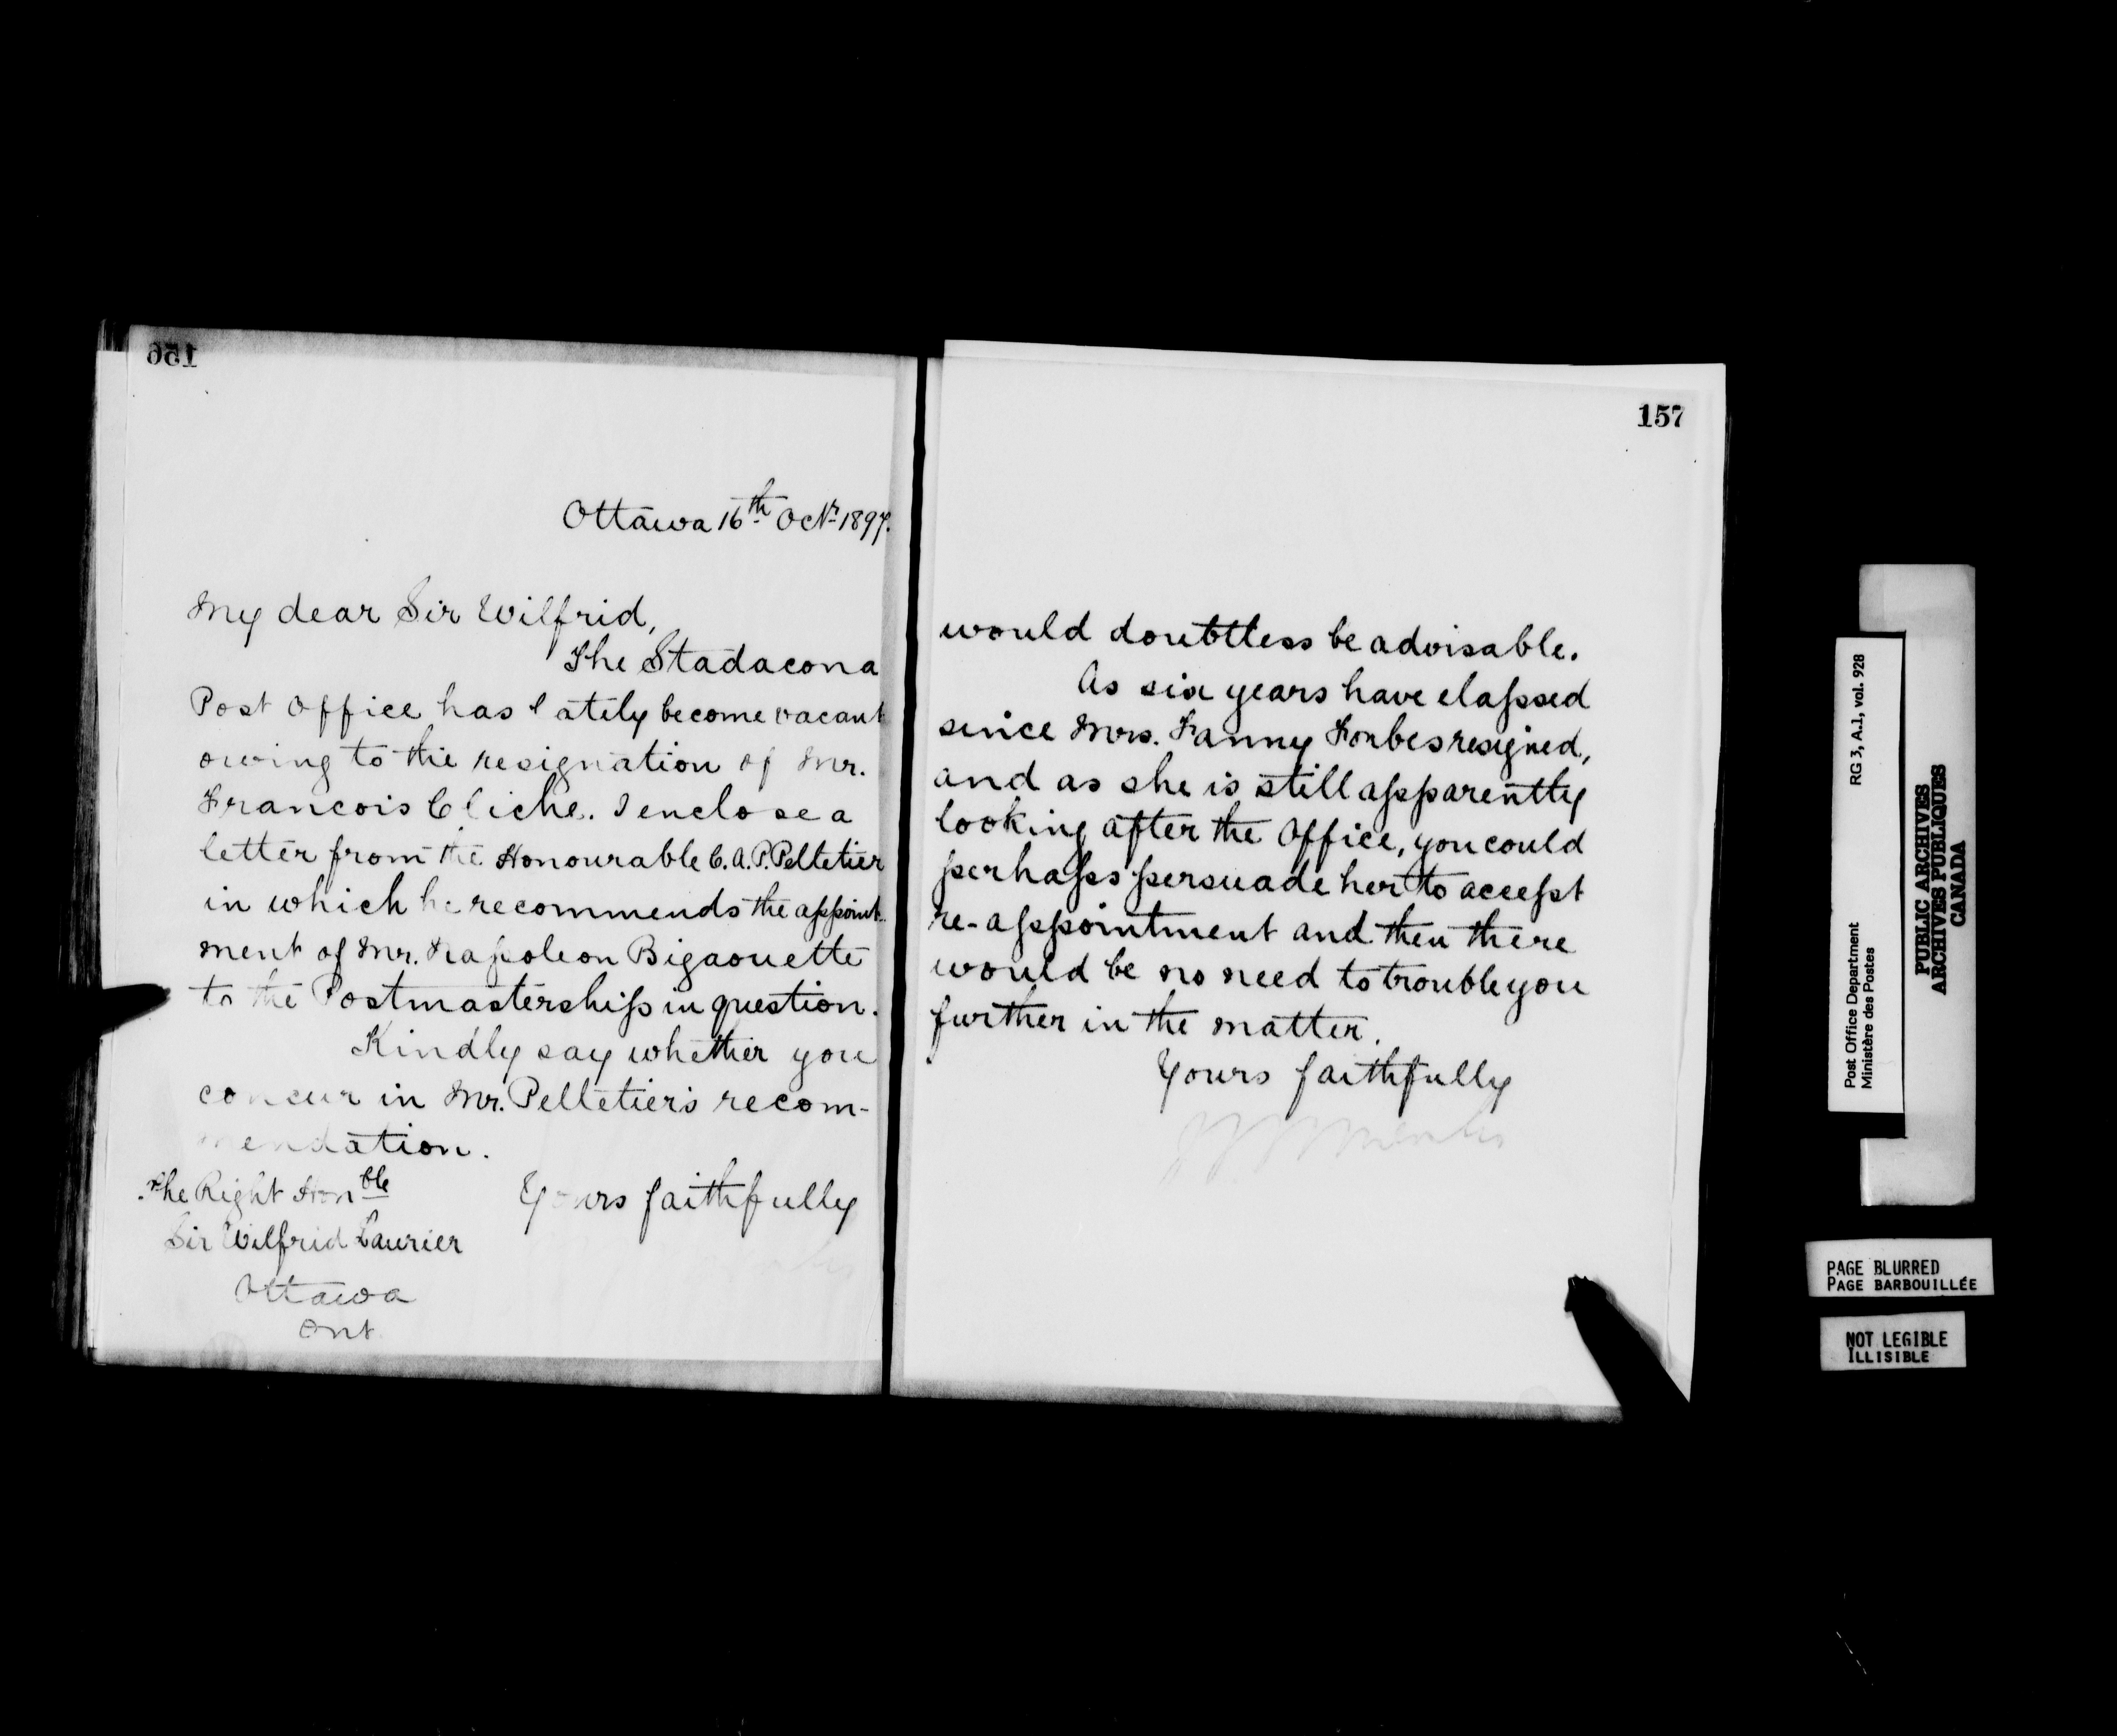 156
Ottawa 16th Octr 1897.
My dear Sir Wilfrid,
The Stadacona
Post Office has lately become vacant
owing to the resignation of Mr.
Francois Cliche. I enclose a
letter from the Honourable C. A. P. Pelletier
in which he recommends the appoint-
ment of Mr. Napoleon Bigaouette
to the Postmastership in question.
Kindly say whether you
concur in Mr. Pelletier's recom-
mendation.
Yours faithfully
The Right Honble
Sir Wilfrid Laurier
Ottawa
Ont.
157
would doubtless be advisable.
As six years have elapsed
since Mrs. Fanny Forbes resigned,
and as she is still apparently
looking after the Office, you could
perhaps persuade her to accept
re-appointment and then there
would be no need to trouble you
further in the matter.
Yours faithfully
Post Office Department RG 3, A.1, vol. 928
Ministère des Postes
PUBLIC ARCHIVES
ARCHIVES PUBLIQUES
CANADA
PAGE BLURRED
PAGE BARBOUILLÉE
NOT LEGIBLE
ILLISIBLE